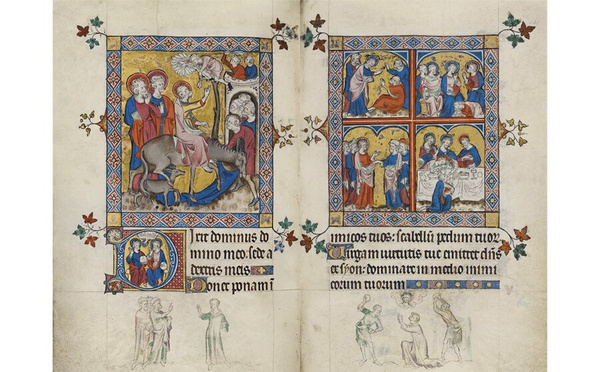 Dixit dominus do
mino meo: sede a
dextris meis
Donec ponam i
nimicos tuos: scabellū pedum tuoꝝ
Virgam virtutis tue emittet dn̄s
ex syon: dominare in medio inimi
corum tuorum